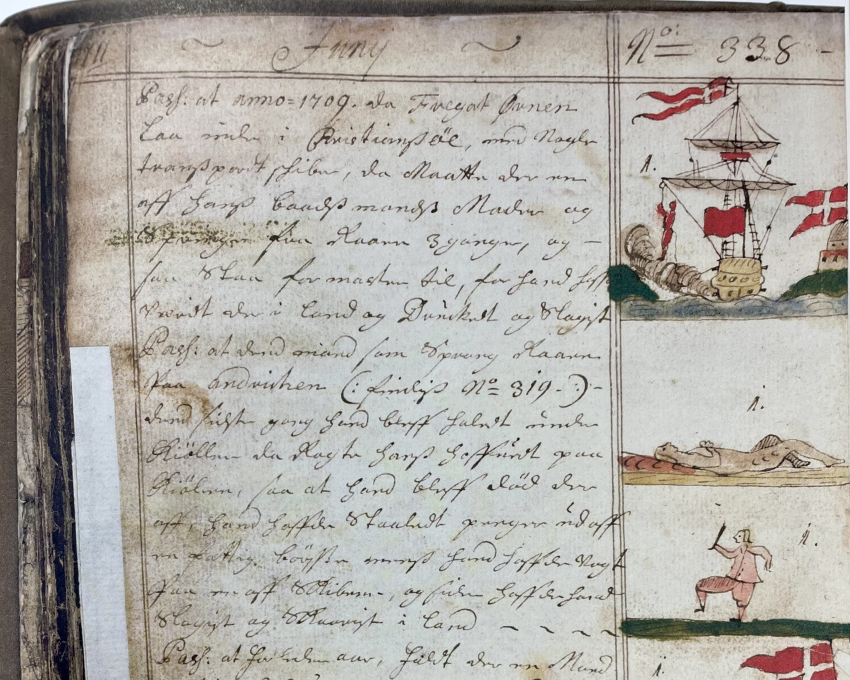 Junij
No: 338 -
Pass: at anno=1709. da Fregat Ørnen
Laa inde i Christiansøe, med Nogle
transport schibe, da Maatte der en
aff hans baadsmands Mader og
Springer fra Raaen 3 gange, og -
saa Staa for masten til, for hand haff
Været der i Land og Drucket og Slagist
Pass: at dend mand som Sprang Raaen
Paa (: findis No= 319-:)-
dend sidste gang hand bleff halet under
Kiöllen da Ragte hans hoffuet paa
Kiölen, saa at hand bleff död der
aff, hand haffde Staalet penge ud aff
en börste meens hand haffde Vagt
Paa en aff Skibene, og siden haffde hand
Slagist og i Land ~ ~ ~ ~
Pass: at aar, haldt der en Mand
1.
1.
2.
1.